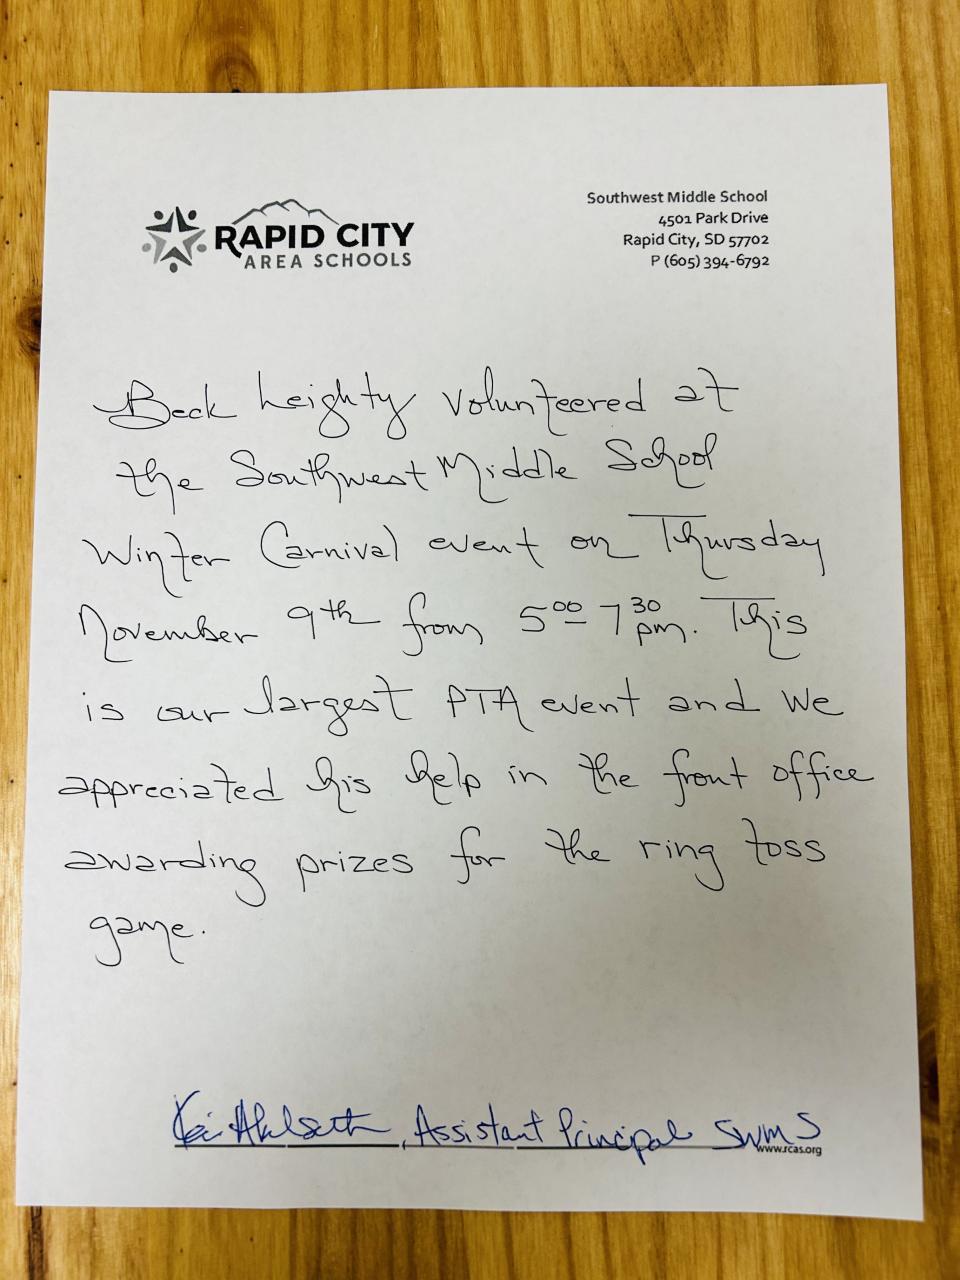 RAPID CITY
AREA SCHOOLS
Southwest Middle School
4501 Park Drive
Rapid City, SD 57702
P (605) 394-6792
Beck Leighty volunteered at
the Southwest Middle School
Winter Carnival event on Thursday
November 9th from 5:00-7:30 pm. This
is our largest PTA event and we
appreciated his help in the front office
awarding prizes for the ring toss
game.
Ahlseth, Assistant Principal SWMS
www.rcas.org